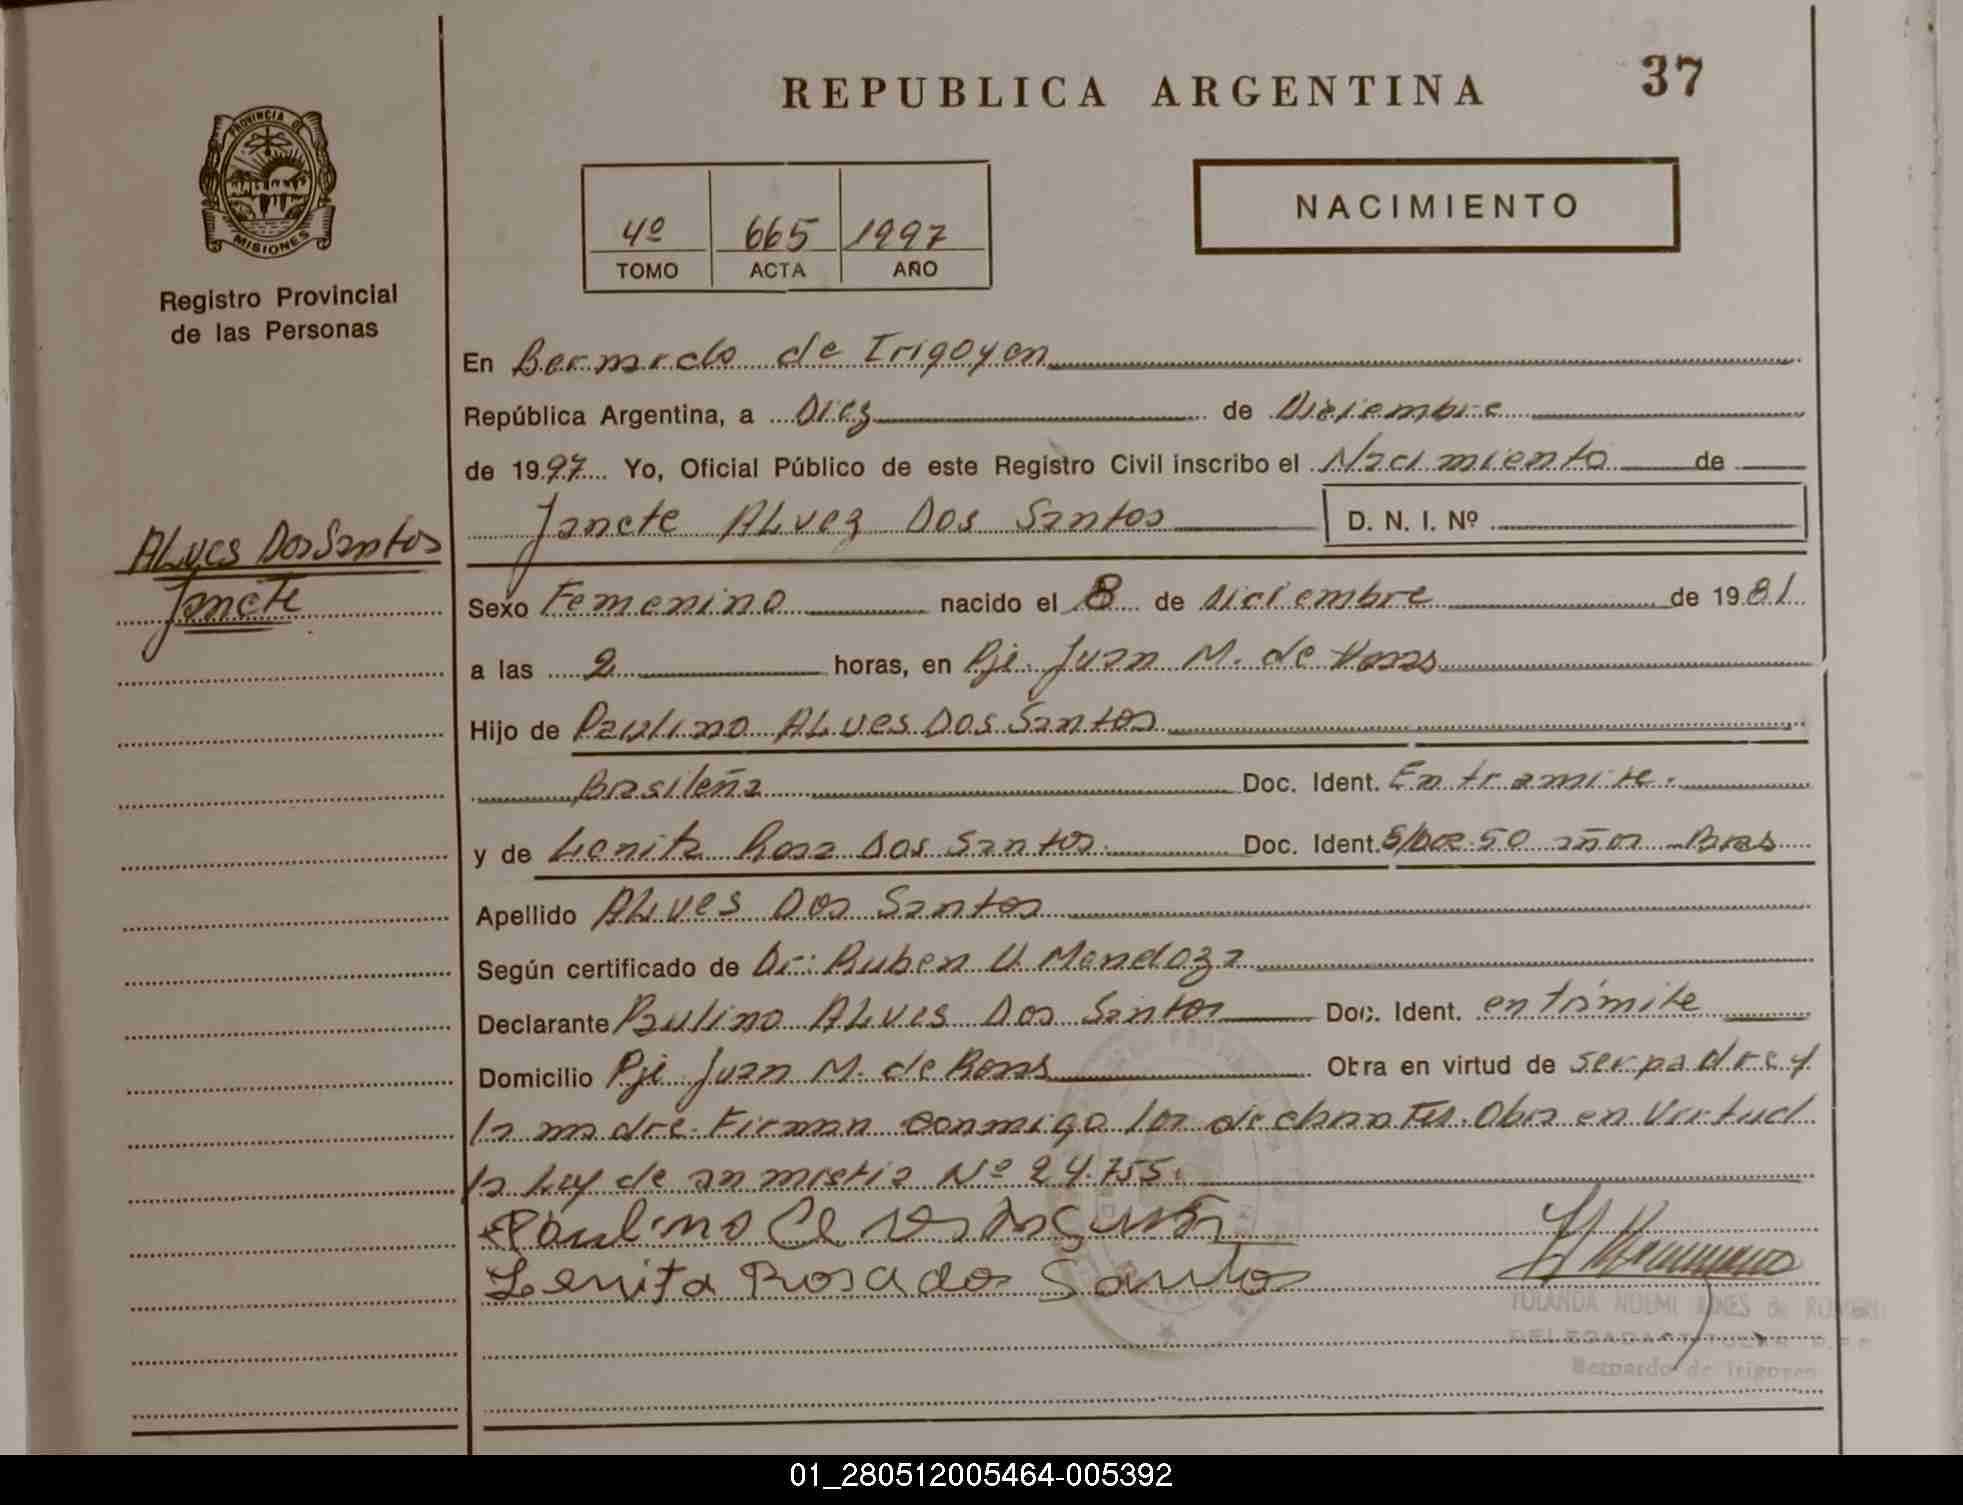 REPUBLICA ARGENTINA
37
PROVINCIA DE
MISIONES
Registro Provincial
de las Personas
4º 665 1997
TOMO ACTA AÑO
NACIMIENTO
En Bernardo de Irigoyen
República Argentina, a Diez de Diciembre
de 1997 Yo, Oficial Público de este Registro Civil inscribo el Nacimiento de
Janete ALvez Dos Santos D. N. I. Nº
ALves Dos Santos
Janete
Sexo Femenino nacido el 8 de Diciembre de 1981
a las 2 horas, en Pje. Juan M. de Rosas
Hijo de Paulino ALves Dos Santos
Brasileña Doc. Ident. En tramite.
y de Lenita Rosa Dos Santos. Doc. Ident. S/Doc 50 años Bras
Apellido ALves Dos Santos
Según certificado de Dr: Ruben V. Mendoza
Declarante Paulino ALves Dos Santos Doc. Ident. en trámite
Domicilio Pje Juan M. de Rosas Obra en virtud de ser padre y
la madre. Firman conmigo los declarantes. Obra en Virtud
la Ley de anmistia Nº 24.755.
Paulino
Lenita Rosa dos Santos
YOLANDA NOEMI de
DELEGADA TITULAR R.P.P.
Bernardo de Irigoyen
01_280512005464-005392